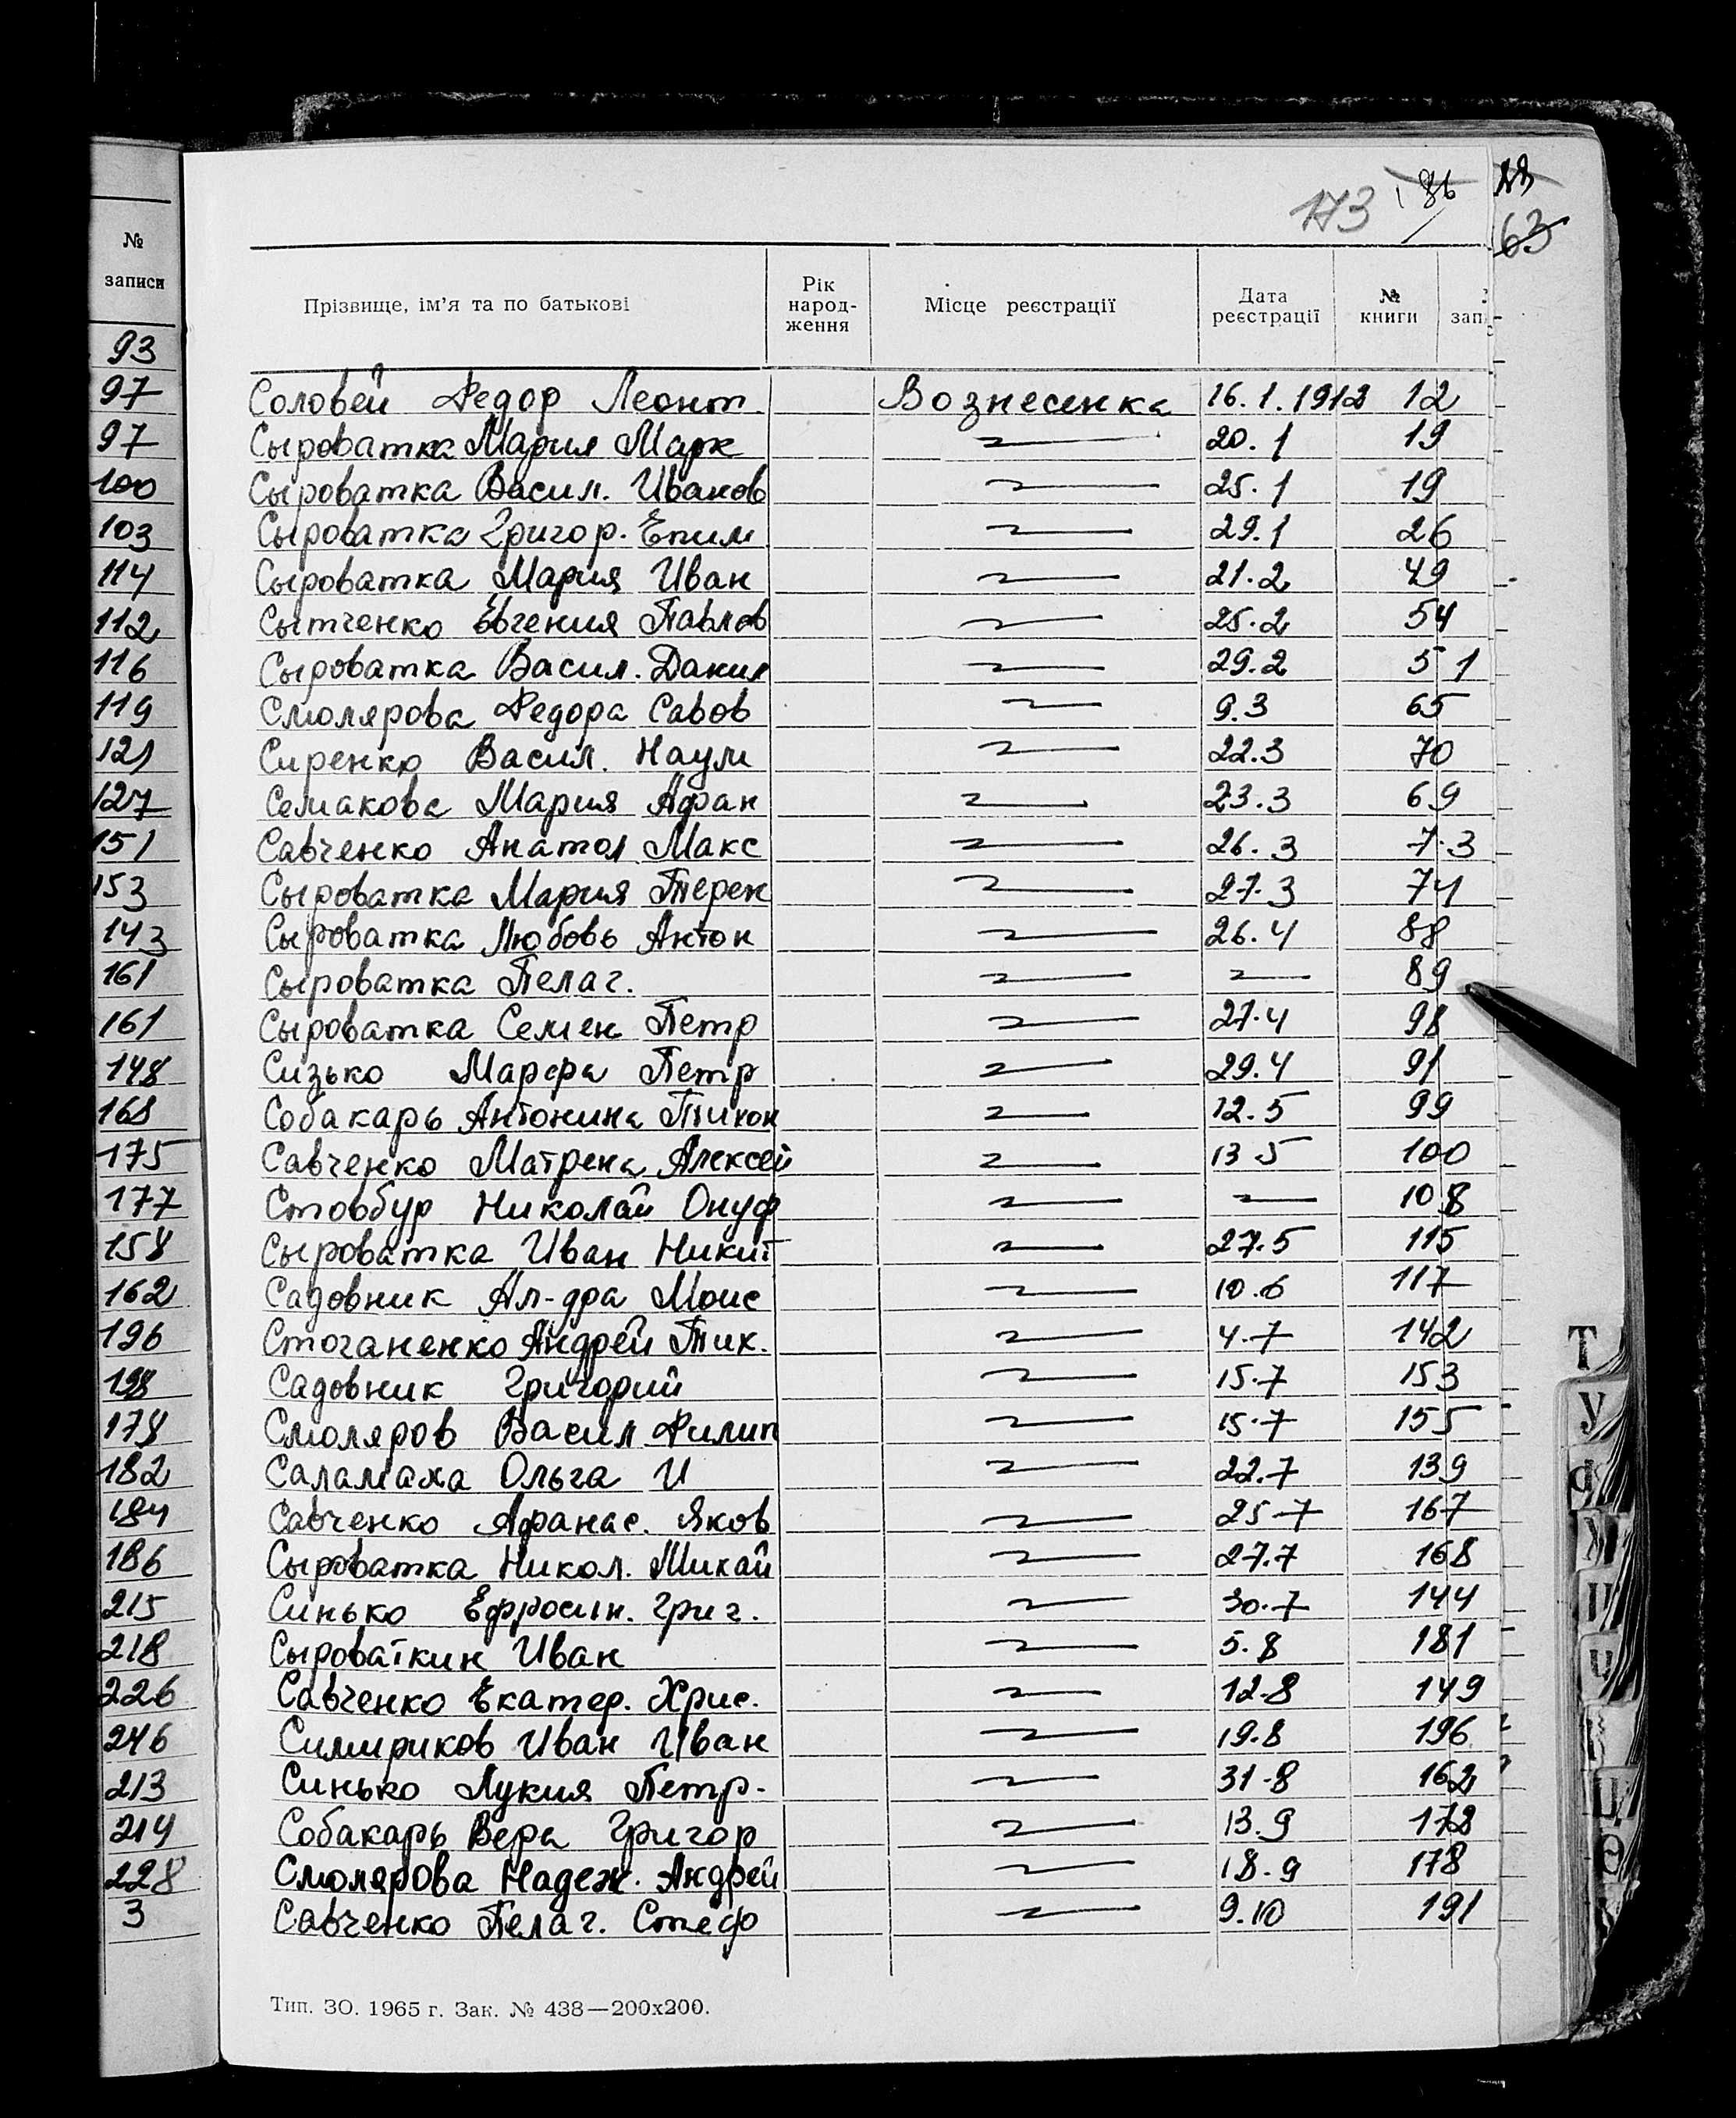 173 186 88
63
№
записи
Прізвище, ім’я та по батькові Рік народ- ження Місце реєстрації Дата реєстрації № книги зап.
93
97
97
100
103
114
112
116
119
121
127
151
153
143
161
161
148
168
175
177
158
162
196
198
178
182
184
186
215
218
226
246
213
214
228
3
Соловей Федор Леонт Вознесенка 16.1.1912 12
Сыроватка Мария Марк 〃 20.1 19
Сыроватка Васил. Иванов 〃 25.1 19
Сыроватка Григор. Епим 〃 29.1 26
Сыроватка Мария Иван 〃 21.2 49
Сытченко Евгения Павлов 〃 25.2 54
Сыроватка Васил. Данил 〃 29.2 51
Смолярова Федора Савов 〃 9.3 65
Сиренко Васил. Наум 〃 22.3 70
Семакова Мария Афан 〃 23.3 69
Савченко Анатол Макс 〃 26.3 73
Сыроватка Мария Терен 〃 27.3 74
Сыроватка Любовь Антон 〃 26.4 88
Сыроватка Пелаг. 〃 〃 89
Сыроватка Семен Петр 〃 27.4 98
Сизько Марфа Петр 〃 29.4 91
Собакарь Антонина Тихон 〃 12.5 99
Савченко Матрена Алексей 〃 13 5 100
Стовбур Николай Онуф 〃 〃 108
Сыроватка Иван Никит 〃 27.5 115
Садовник Ал-дра Моис 〃 10.6 117
Стоганенко Андрей Тих. 〃 4.7 142
Садовник Григорий 〃 15.7 153
Смоляров Васил Филип 〃 15.7 155
Саламаха Ольга И 〃 22.7 139
Савченко Афанас. Яков 〃 25 7 167
Сыроватка Никол. Михай 〃 27.7 168
Синько Ефросин. Григ. 〃 30.7 144
Сыроваткин Иван 〃 5.8 181
Савченко Екатер. Хрис. 〃 12.8 149
Симириков Иван Иван 〃 19.8 196
Синько Лукия Петр. 〃 31.8 162
Собакарь Вера Григор 〃 13.9 172
Смолярова Надеж. Андрей 〃 18.9 178
Савченко Пелаг. Стеф 〃 9.10 191
Тип. ЗО. 1965 г. Зак. № 438—200х200.
Т
У
Ф
Х
Ц